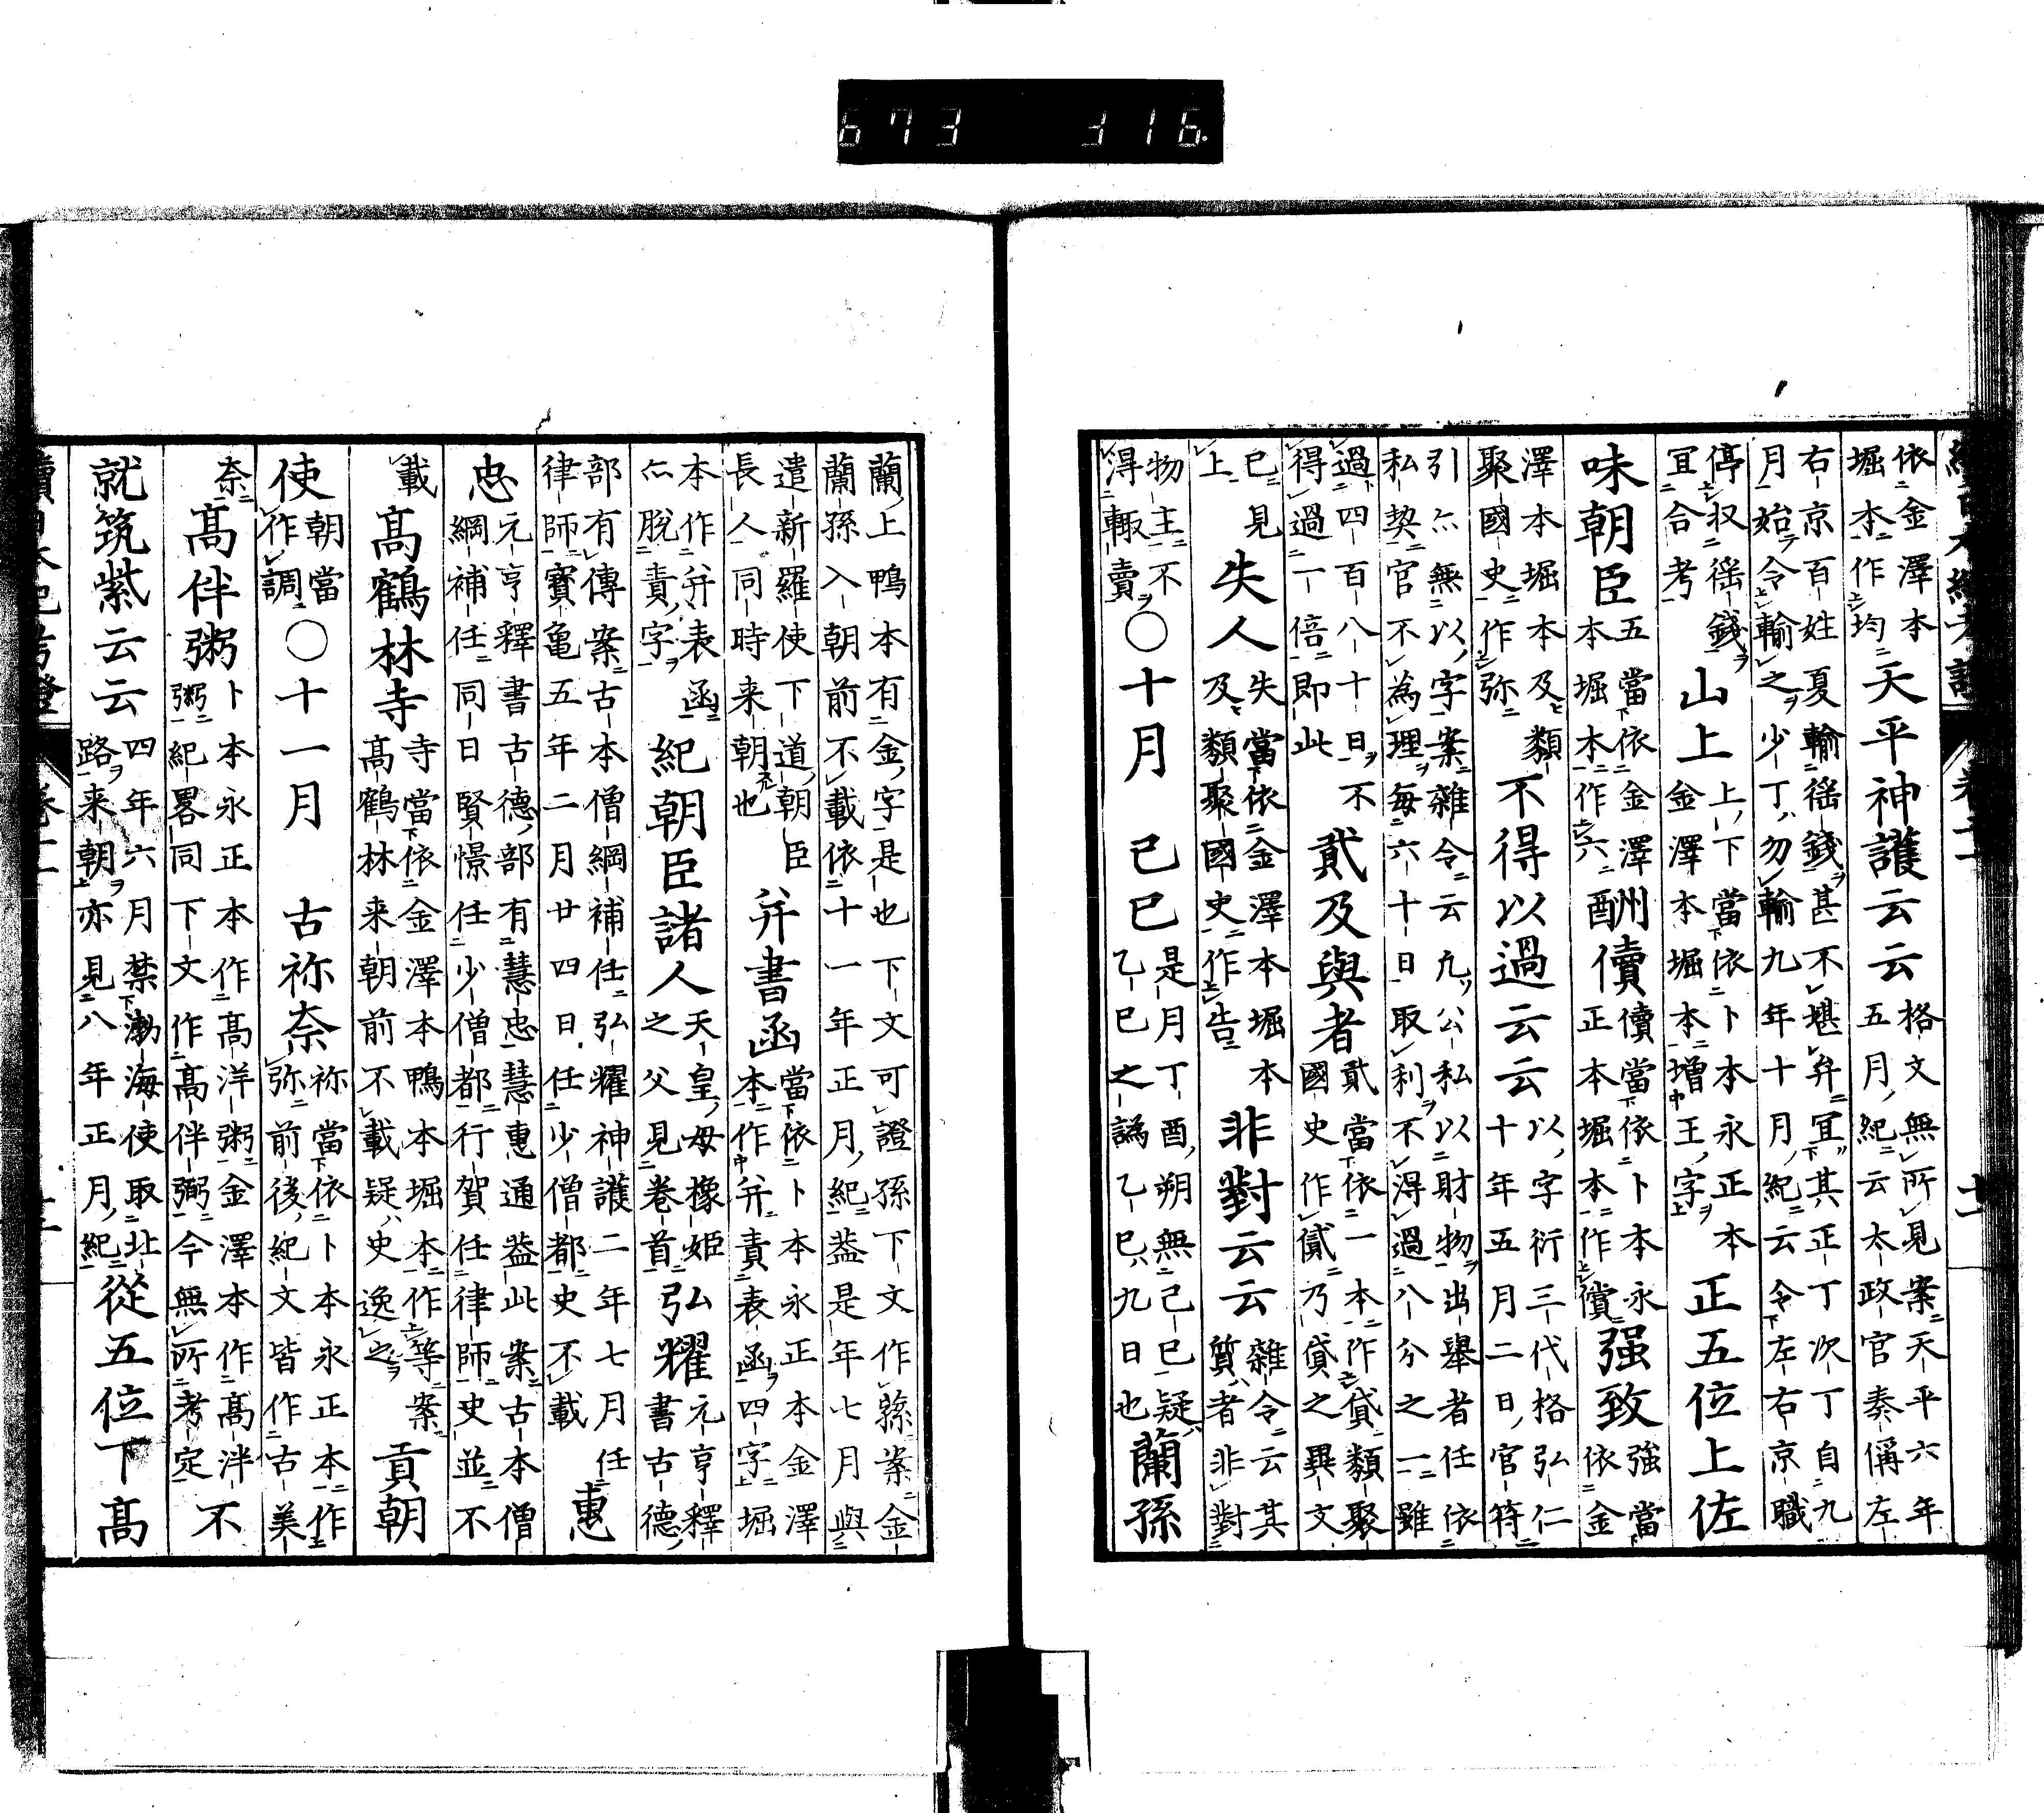 依金澤本堀本作均天平神護云云格文無所見案天平六年五月紀云太政官奏偁左
右京百姓夏輸徭錢甚不堪弁宜其正丁次丁自九月始令輸之少丁勿輸九年十月紀云令左右京職
停收徭錢宜合考山上上下當依卜本永正本金澤本堀本增王字正五位上佐
味朝臣五當依金澤本堀本作六酬儥儥當依卜本永正本堀本作償强致強當依金
澤本堀本及類聚國史作弥不得以過云云以字衍三代格弘仁十年五月二日官符
引亦無以字案雜令云凡公私以財物出舉者任依私契官不為理每六十日取利不得過八分之一雖
過四百八十日不得過一倍即此貮及與者貮當依一本作貸類聚國史作貣乃貸之異文
已見上失人失當依金澤本堀本及類聚國史作告非對云云雜令云其質者非對
物主不得輙賣○十月 己巳是月丁酉朔無己巳疑乙巳之譌乙巳九日也蘭孫
蘭上鴨本有金字是也下文可證孫下文作蓀案金蘭孫入朝前不載依十一年正月紀蓋是年七月與
遣新羅使下道朝臣長人同時来朝者也幷書函當依卜本永正本金澤本作幷責表函四字堀
本作幷表函亦脫責字紀朝臣諸人天皇母橡姫之父見卷首弘耀元亨釋書古德
部有傳案古本僧綱補任弘耀神護二年七月任律師寶亀五年二月廿四日任少僧都史不載惠
忠元亨釋書古德部有慧忠慧惠通蓋此案古本僧綱補任同日賢憬任少僧都行賀任律師史並不
載高鶴林寺寺當依金澤本鴨本堀本作等案高鶴林来朝前不載疑史逸之貢朝
使朝當作調○十一月 古祢奈祢當依卜本永正本作弥前後紀文皆作古美
奈高伴粥卜本永正本作高洋粥金澤本作高泮粥紀畧同下文作高伴弻今無所考定不
就筑紫云云四年六月禁渤海使取北路来朝亦見八年正月紀從五位下高